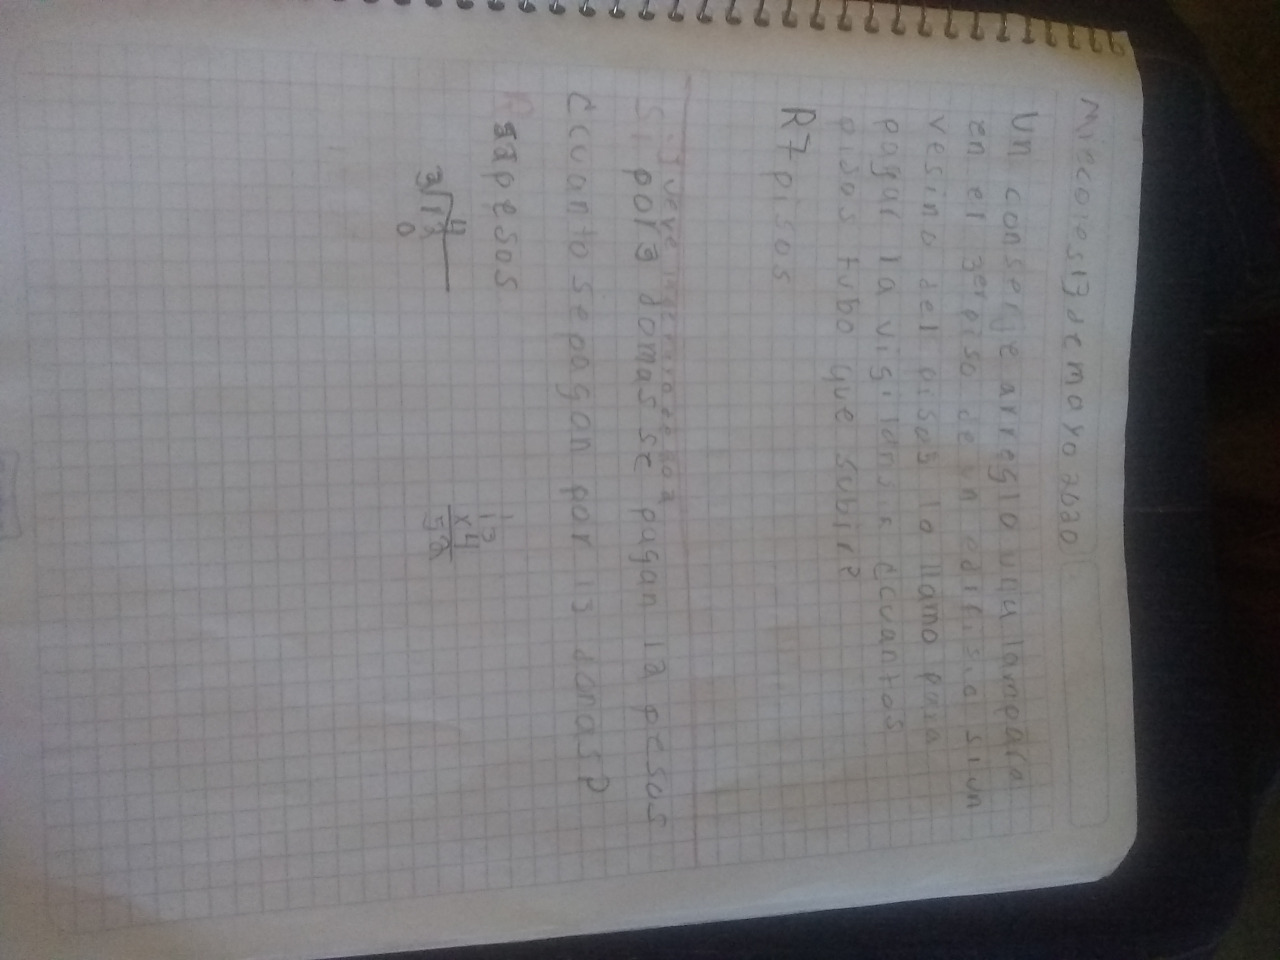 Miercoles 13 de mayo 2020
Un conserje arreglo una lampara
en el 3er piso de un edifisio si un
vesino del piso 3 lo llamo para
pagar la vigilansia ¿cuantos
pisos tubo que subir?
R 7 pisos
Jueves
Si por 3 donas se pagan 12 pesos
¿cuanto se pagan por 13 donas?
R 52 pesos
4
3 12
0
13
x4
52